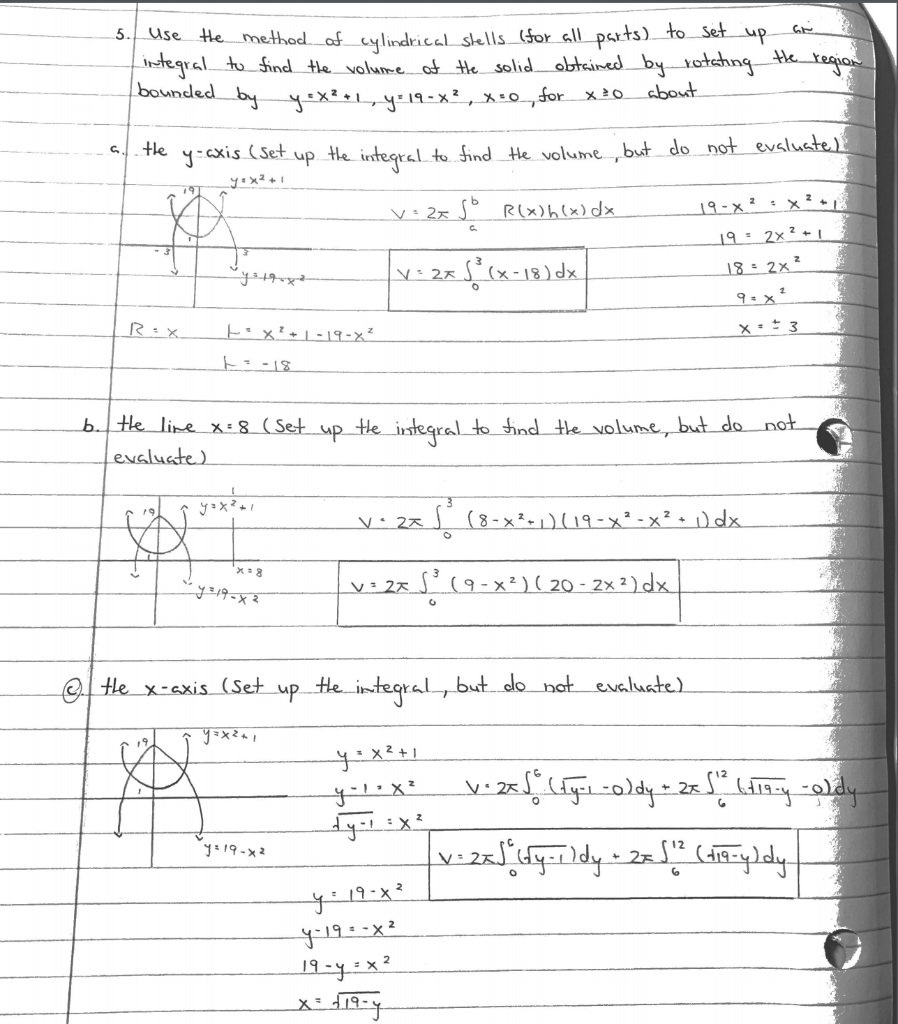 5. Use the method of cylindrical shells (for all parts) to set up an
integral to find the volume of the solid obtained by rotating the region
bounded by y = x² + 1, y = 19 - x², x = 0, for x ≥ 0 about
a. the y-axis (Set up the integral to find the volume, but do not evaluate)
y = x² + 1
19
1
-3
3
y = 19 - x²
V = 2π ∫₀³ R(x)h(x)dx
V = 2π ∫₀³ (x - 18) dx
19 - x² = x² + 1
19 = 2x² + 1
18 = 2x²
9 = x²
x = ± 3
R = x
h = x² + 1 - 19 - x²
h = -18
b. the line x = 8 (Set up the integral to find the volume, but do not
evaluate)
19
y = x² + 1
1
x = 8
y = 19 - x²
V = 2π ∫₀³ (8 - x² + 1)(19 - x² - x² + 1) dx
V = 2π ∫₀³ (9 - x²)(20 - 2x²) dx
c. the x-axis (Set up the integral, but do not evaluate)
19
y = x² + 1
1
y = 19 - x²
y = x² + 1
y - 1 = x²
√y-1 = x²
V = 2π ∫₀⁶ (√y-1 - 0) dy + 2π ∫₆¹² (√19-y - 0) dy
V = 2π ∫₀⁶ (√y-1) dy + 2π ∫₆¹² (√19-y) dy
y = 19 - x²
y - 19 = -x²
19 - y = x²
x = √19-y